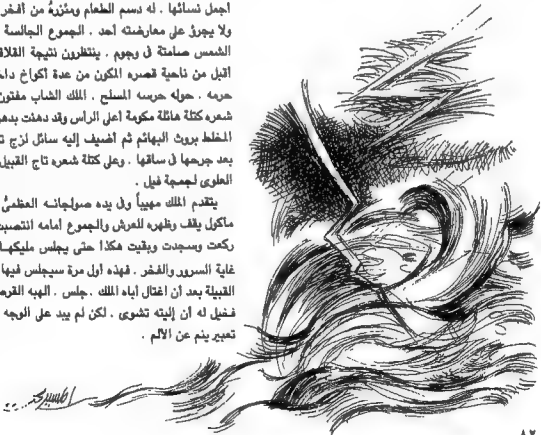 أجمل نسائها . له دسم الطعام ومئزره من أفخر
ولا يجرؤ على معارضته أحد . الجموع الجالسة
الشمس صامتة فى وجوم . ينتظرون نتيجة القلاقل
أقبل من ناحية قصره المكون من عدة أكواخ داخل
حرمه . حوله حرسه المسلح . الملك الشاب مفتون
شعره كتلة هائلة مكومة أعلى الرأس وقد دهنت بدهن
المخلط بروث البهائم ثم أضيف إليه سائل لزج
بعد جرحها فى ساقها . وعلى كتلة شعره تاج القبيلة
العلوى لجمجمة فيل .
يتقدم الملك مهيباً وفى يده صولجانه العظمىُّ
مأكول يقف وظهره للعرش والجموع أمامه انتصبت
ركعت وسجدت وبقيت هكذا حتى يجلس مليكها
غاية السرور والفخر . فهذه أول مرة سيجلس فيها
القبيلة بعد أن اغتال أباه الملك . جلس . ألهبه القرص
فخيل له أن إليته تشوى . لكن لم يبد على الوجه
تعبير ينم عن الألم .
٨٢